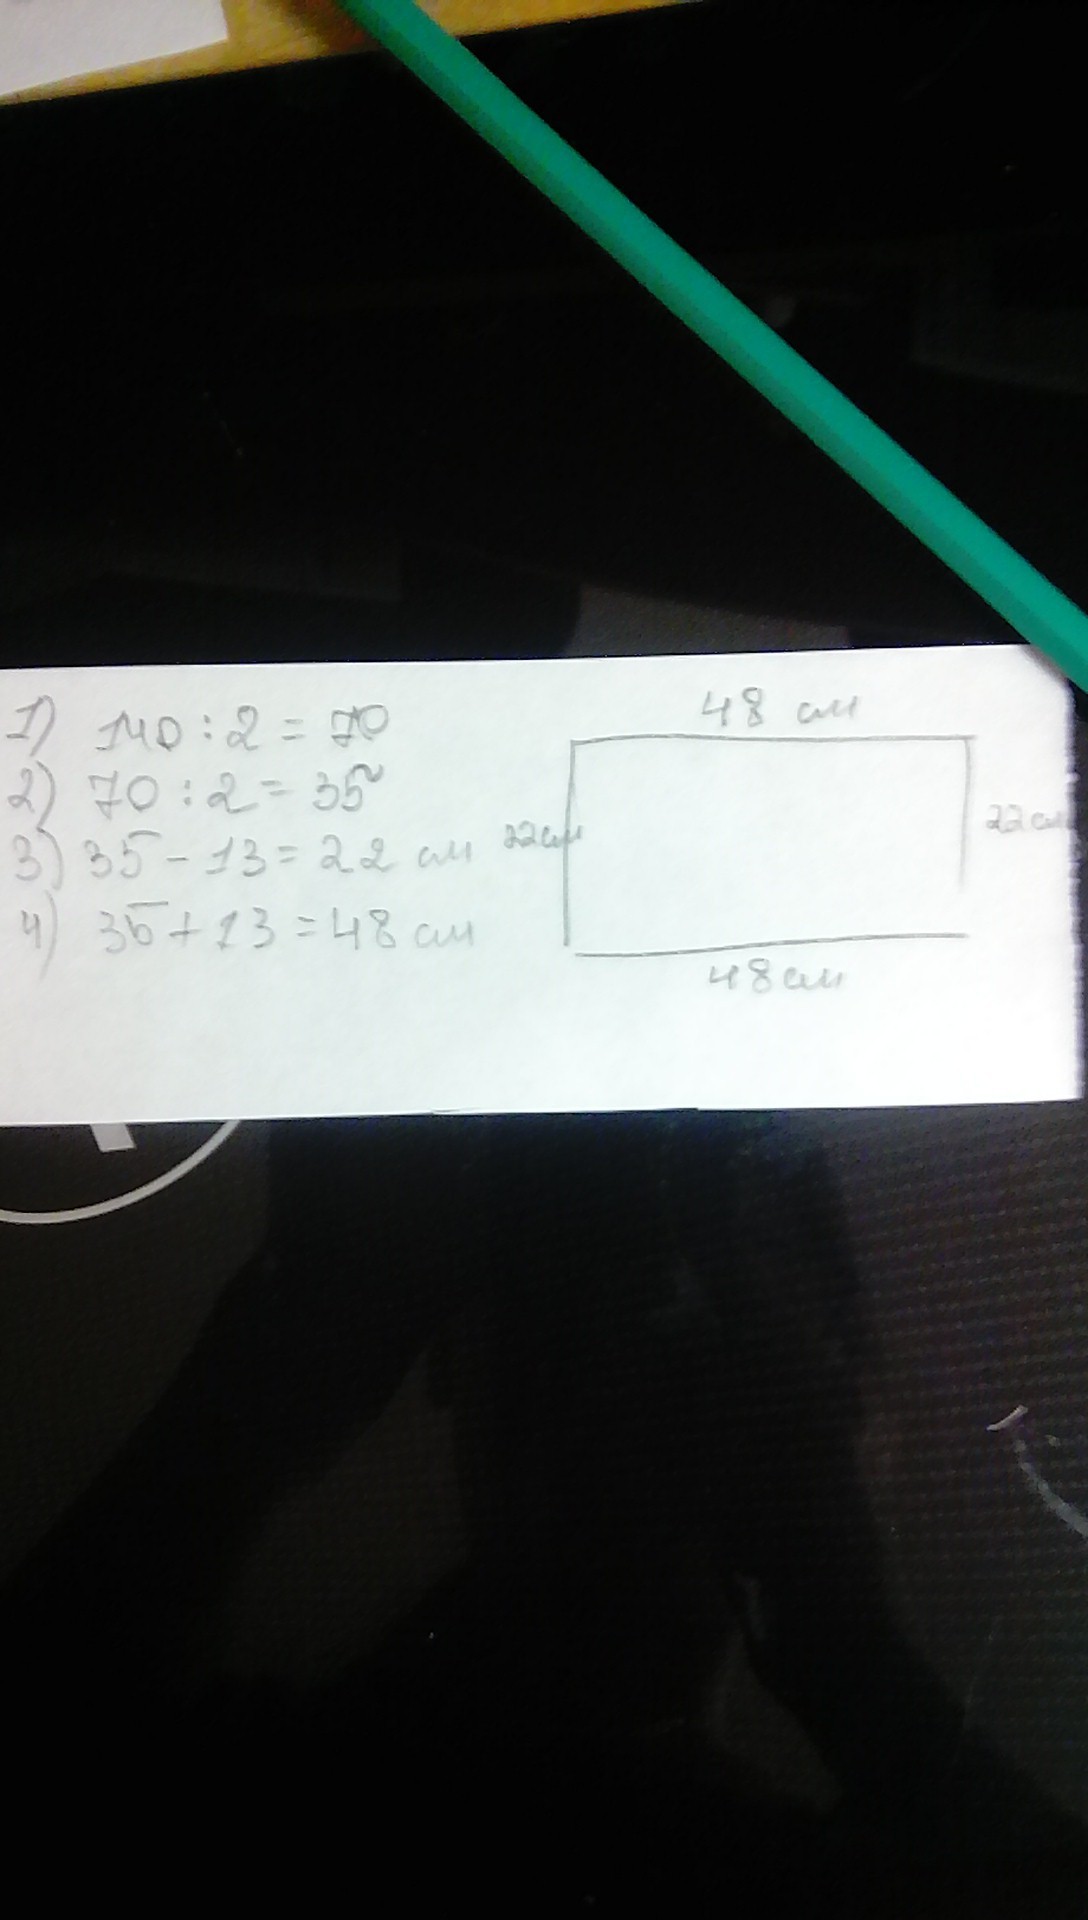 1) 140 : 2 = 70
2) 70 : 2 = 35
3) 35 - 13 = 22 см
4) 35 + 13 = 48 см
48 см
22см
22см
48см